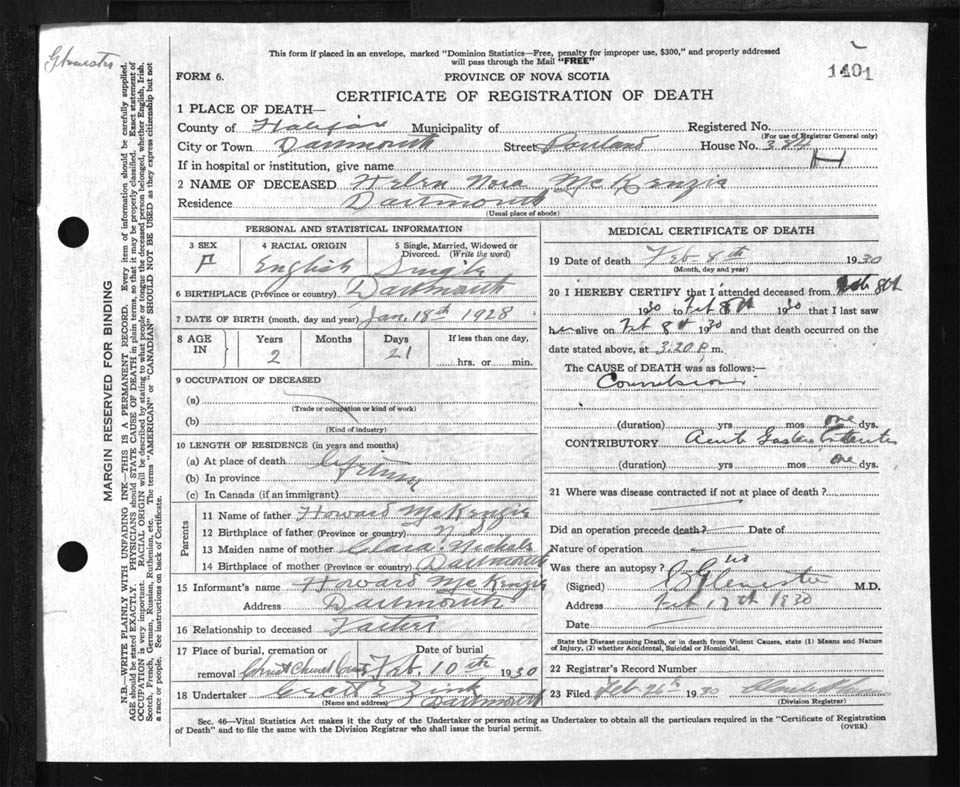 This form if placed in an envelope, marked "Dominion Statistics—Free, penalty for improper use, $300," and properly addressed
will pass through the Mail "FREE"
1401
FORM 6.
PROVINCE OF NOVA SCOTIA
CERTIFICATE OF REGISTRATION OF DEATH
1 PLACE OF DEATH—
County of Halifax Municipality of Registered No.
(For use of Registrar General only)
City or Town Dartmouth Street Portland House No. 384
H
If in hospital or institution, give name
2 NAME OF DECEASED Helen Nora McKenzie
Residence Dartmouth
(Usual place of abode)
PERSONAL AND STATISTICAL INFORMATION
3 SEX 4 RACIAL ORIGIN 5 Single, Married, Widowed or
Divorced. (Write the word)
F English Single
6 BIRTHPLACE (Province or country) Dartmouth
7 DATE OF BIRTH (month, day and year) Jan. 18th 1928
8 AGE IN Years Months Days If less than one day,
2 21 hrs. or min.
9 OCCUPATION OF DECEASED
(a)
(Trade or occupation or kind of work)
(b)
(Kind of industry)
10 LENGTH OF RESIDENCE (in years and months)
(a) At place of death
(b) In province
(c) In Canada (if an immigrant)
Parents
11 Name of father Howard McKenzie
12 Birthplace of father (Province or country) N.S.
13 Maiden name of mother Clara Nichols
14 Birthplace of mother (Province or country) Dartmouth
15 Informant's name Howard McKenzie
Address Dartmouth
16 Relationship to deceased Father
17 Place of burial, cremation or Date of burial
removal Christ Church Feb. 10th 1930
18 Undertaker Zink
(Name and address) Dartmouth
MEDICAL CERTIFICATE OF DEATH
19 Date of death Feb 8th 1930
(Month, day and year)
20 I HEREBY CERTIFY that I attended deceased from Feb 8th
1930 to Feb 8th 1930 that I last saw
her alive on Feb 8th 1930 and that death occurred on the
date stated above, at 3.20 P. m.
The CAUSE of DEATH was as follows:—
Convulsions
(duration) yrs mos one dys.
CONTRIBUTORY Acute Gastro Enteritis
(duration) yrs mos one dys.
21 Where was disease contracted if not at place of death?
Did an operation precede death? Date of
Nature of operation
Was there an autopsy? no
(Signed) Glenister M.D.
Address Feb 17th 1930
Date
State the Disease causing Death, or in death from Violent Causes, state (1) Means and Nature
of Injury, (2) whether Accidental, Suicidal or Homicidal.
22 Registrar's Record Number
23 Filed Feb 26th 1930
(Division Registrar)
Sec. 46—Vital Statistics Act makes it the duty of the Undertaker or person acting as Undertaker to obtain all the particulars required in the "Certificate of Registration
of Death" and to file the same with the Division Registrar who shall issue the burial permit.
(OVER)
Glenister
MARGIN RESERVED FOR BINDING
N.B.—WRITE PLAINLY WITH UNFADING INK—THIS IS A PERMANENT RECORD. Every item of information should be carefully supplied.
AGE should be stated EXACTLY. PHYSICIANS should STATE CAUSE OF DEATH in plain terms, so that it may be properly classified. Exact statement of
OCCUPATION is very important. RACIAL ORIGIN will be described by stating to what people or tongue the deceased person belonged, whether English, Irish,
Scotch, French, German, Russian, Ruthenian, etc. The terms "AMERICAN" or "CANADIAN" SHOULD NOT BE USED as they express citizenship but not
a race or people. See instructions on back of Certificate.